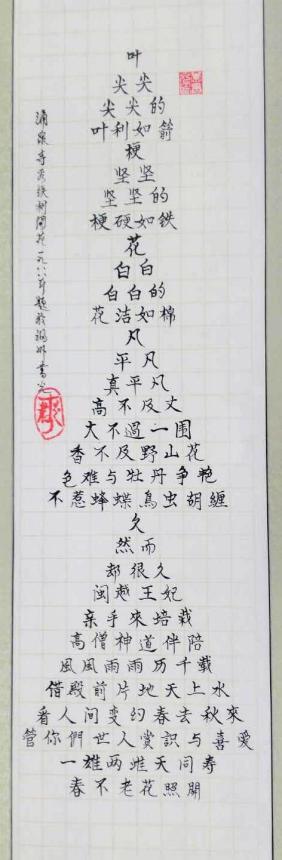 叶
尖尖
尖尖的
叶利如箭
梗
坚坚
坚坚的
梗硬如铁
花
白白
白白的
花洁如棉
凡
平凡
真平凡
高不及丈
大不過一围
香不及野山花
色难与牡丹争艳
不惹蜂蝶鳥虫胡缠
久
然而
却很久
闽越王妃
亲手來培栽
高僧神道伴陪
風風雨雨历千载
借殿前片地天上水
看人间变幻春去秋來
管你們世人赏识与喜愛
一雄两雌天同寿
春不老花照開
涌泉寺观铁树開花一九八八年題